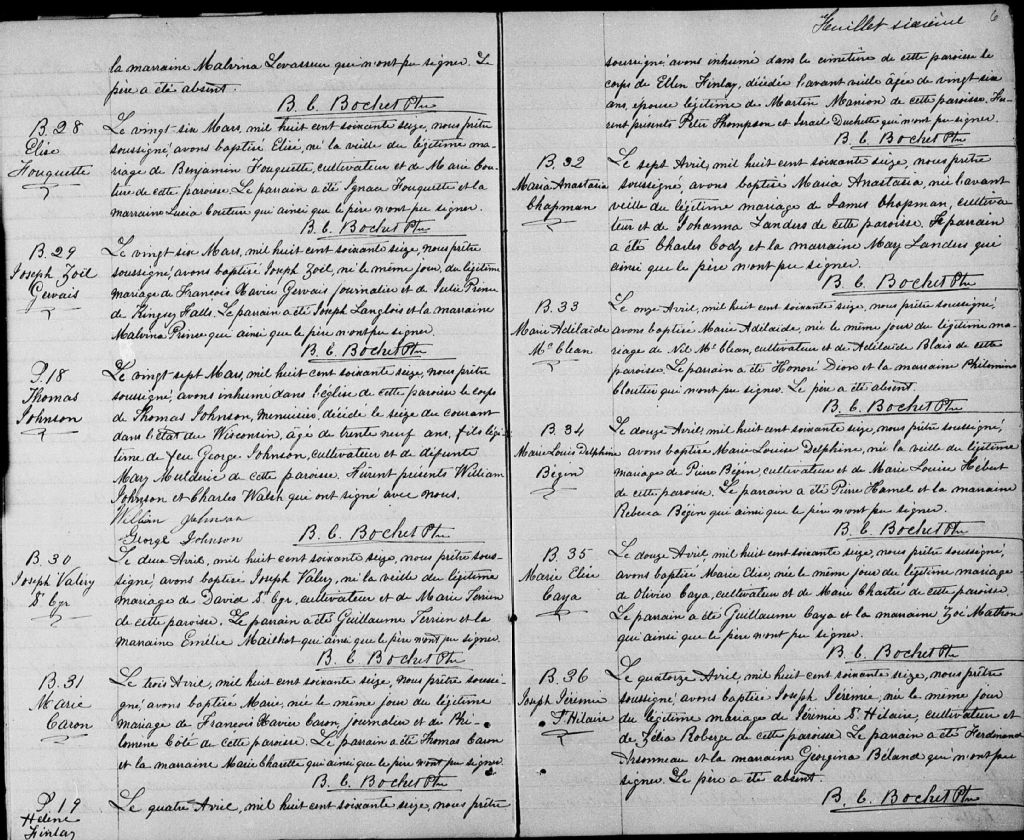 la marraine Malvina Levasseur qui n'ont pu signer. Le
père a été absent.
B. C. Bochet Ptre
B. 28
Elise
Fouquette
Le vingt six Mars, mil huit cent soixante seize, nous prêtre
soussigné, avons baptisé Elisé, né la veille du légitime ma-
riage de Benjamin Fouquette, cultivateur et de Marie Cou-
ture de cette paroisse. Le parrain a été Ignace Fouquette et la
marraine Lucia Couture qui ainsi que le père n'ont pu signer.
B. C. Bochet Ptre
B. 29
Joseph Zoël
Gervais
Le vingt six Mars, mil huit cent soixante seize, nous prêtre
soussigné, avons baptisé Joseph Zoël, né le même jour, du légitime
mariage de François Xavier Gervais journalier et de Julie Prince
de Kingsey Falls. Le parrain a été Joseph Langlois et la marraine
Malvina Prince qui ainsi que le père n'ont pu signer.
B. C. Bochet Ptre
P. 18
Thomas
Johnson
Le vingt sept Mars, mil huit cent soixante seize, nous prêtre
soussigné, avons inhumé dans l'église de cette paroisse le corps
de Thomas Johnson, menuisier, décédé le seize du courant
dans l'état du Wisconsin, âgé de trente neuf ans, fils légi-
time de feu George Johnson, cultivateur et de défunte
Mary de cette paroisse. Furent présents William
Johnson et Charles Walsh qui ont signé avec nous.
William Johnson
George Johnson
B. C. Bochet Ptre
B. 30
Joseph Valéry
St Cyr
Le deux Avril, mil huit cent soixante seize, nous prêtre sous-
signé, avons baptisé Joseph Valéry, né la veille du légitime
mariage de David St Cyr, cultivateur et de Marie Terrien
de cette paroisse. Le parrain a été Guillaume Terrien et la
marraine Emélie Mailhot qui ainsi que le père n'ont pu signer.
B. C. Bochet Ptre
B. 31
Marie
Caron
Le trois Avril, mil huit cent soixante seize, nous prêtre soussi-
gné, avons baptisé Marie, née le même jour du légitime
mariage de François Xavier Caron, journalier et de Phi-
lomène Côté de cette paroisse. Le parrain a été Thomas Caron
et la marraine Marie Charette qui ainsi que le père n'ont pu signer.
B. C. Bochet Ptre
P. 19
Hélène
Finlay
Le quatre Avril, mil huit cent soixante seize, nous prêtre
Feuillet sixième 6
soussigné, avons inhumé dans le cimetière de cette paroisse le
corps de Ellen Finlay, décédée l'avant veille âgée de vingt six
ans, épouse légitime de Martin Manion de cette paroisse. Fu-
rent présents Peter Thompson et Israel Duchette qui n'ont pu signer.
B. C. Bochet Ptre
B. 32
Maria Anastasia
Chapman
Le sept Avril, mil huit cent soixante seize, nous prêtre
soussigné, avons baptisé Maria Anastasia, née l'avant
veille du légitime mariage de James Chapman, cultiva-
teur et de Johanna Landers de cette paroisse. Le parrain
a été Charles Cody et la marraine Mary Landers qui
ainsi que le père n'ont pu signer.
B. C. Bochet Ptre
B. 33
Marie Adélaïde
Mc Clean
Le onze Avril, mil huit cent soixante seize, nous prêtre soussigné,
avons baptisé Marie Adélaïde, née le même jour du légitime ma-
riage de Nil Mc Clean, cultivateur et de Adélaïde Blais de cette
paroisse. Le parrain a été Honoré Dion et la marraine Philomène
Cloutier qui n'ont pu signer. Le père a été absent.
B. C. Bochet Ptre
B. 34
Marie Louis Delphine
Bégin
Le douze Avril, mil huit cent soixante seize, nous prêtre soussigné,
avons baptisé Marie Louise Delphine, née la veille du légitime
mariage de Pierre Bégin, cultivateur et de Marie Louise Hébert
de cette paroisse. Le parrain a été Pierre Hamel et la marraine
Rebecca Bégin qui ainsi que le père n'ont pu signer.
B. C. Bochet Ptre
B. 35
Marie Elise
Caya
Le douze Avril, mil huit cent soixante seize, nous prêtre soussigné,
avons baptisé Marie Elise, née le même jour du légitime mariage
de Olivier Caya, cultivateur et de Marie Chartié de cette paroisse.
Le parrain a été Guillaume Caya et la marraine Zoé Mathon
qui ainsi que le père n'ont pu signer.
B. C. Bochet Ptre
B. 36
Joseph Jérémie
St Hilaire
Le quatorze Avril, mil huit cent soixante seize, nous prêtre
soussigné, avons baptisé Joseph Jérémie, né le même jour
du légitime mariage de Jérémie St Hilaire, cultivateur et
de Zélia Roberge de cette paroisse. Le parrain a été Ferdinand
et la marraine Georgina Béland qui n'ont pu
signer. Le père a été absent.
B. C. Bochet Ptre